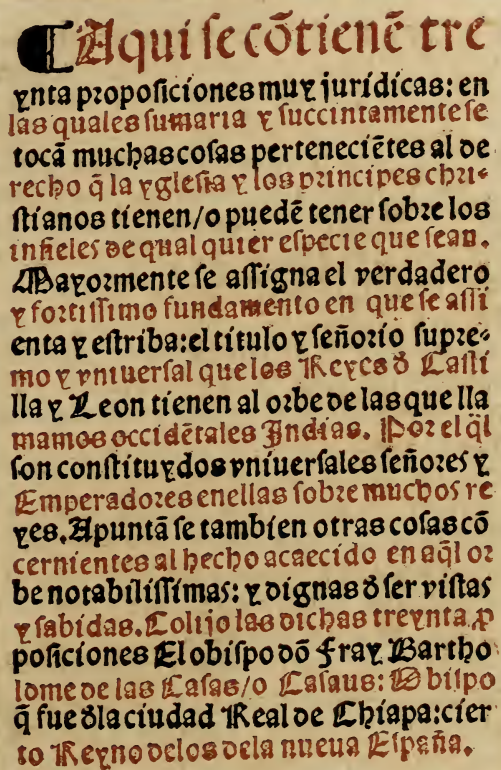 ¶Aqui se cõtienẽ tre
ynta proposiciones muy juridicas: en
las quales sumaria y succintamente se
tocã muchas cosas perteneciẽtes al de
recho q̃ la yglesia y los principes chri-
stianos tienen/o puedẽ tener sobre los
infieles de qual quier especie que sean.
Mayormente se assigna el verdadero
y fortissimo fundamento en que se assi
enta y estriba: el titulo y señorio supre-
mo y vniuersal que los Reyes đ Casti
lla y Leon tienen al orbe de las que lla
mamos occidẽtales Indias. Por el q̃l
son constituydos vniuersales señores y
Emperadores enellas sobre muchos re
yes. Apuntã se tambien otras cosas cõ
cernientes al hecho acaecido en aq̃l or
be notabilissimas: y dignas đ ser vistas
y sabidas. Colijo las dichas treynta ꝓ
posiciones El obispo dõ fray Bartho
lome de las Casas/o Casaus: Obispo
q̃ fue đla ciudad Real de Chiapa: cier
to Reyno delos dela nueua España.